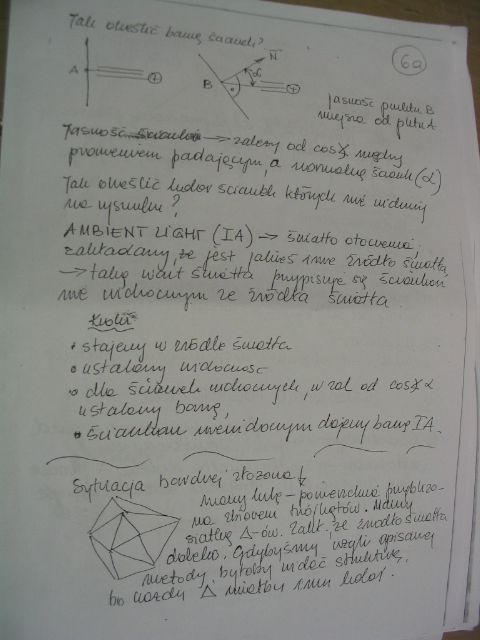 Jak określić barwę ścianek?
6a
A
N
B
α
jasność punktu B
mniejsza od pktu A
Jasność ścianki → zależy od cos∢ między
promieniem padającym, a normalną ścianki (α)
Jak określić kolor ścianek których nie widzimy
na rysunku?
AMBIENT LIGHT (IA) → światło otoczenia;
zakładamy, że jest jakieś inne źródło światła
→ taką wart światła przypisuje się ściankom
nie widocznym ze źródła światła.
• stajemy w źródle światła
• ustalamy widoczność
• dla ścianek widocznych, w zal od cos∢ α
ustalamy barwę,
• ściankom niewidocznym dajemy barwę IA.
Sytuacja bardziej złożona
mamy kulę – powierzchnia przybliżo-
na zbiorem trójkątów. Mamy
siatkę Δ-ów. Zakł. że źródło światła
daleko. Gdybyśmy wzięli opisaną
metodę, byłoby widać strukturę,
bo każdy Δ miałby inny kolor.